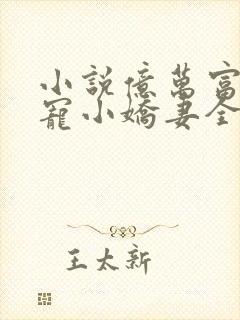 小說億萬富
寵小嬌妻全
王太新